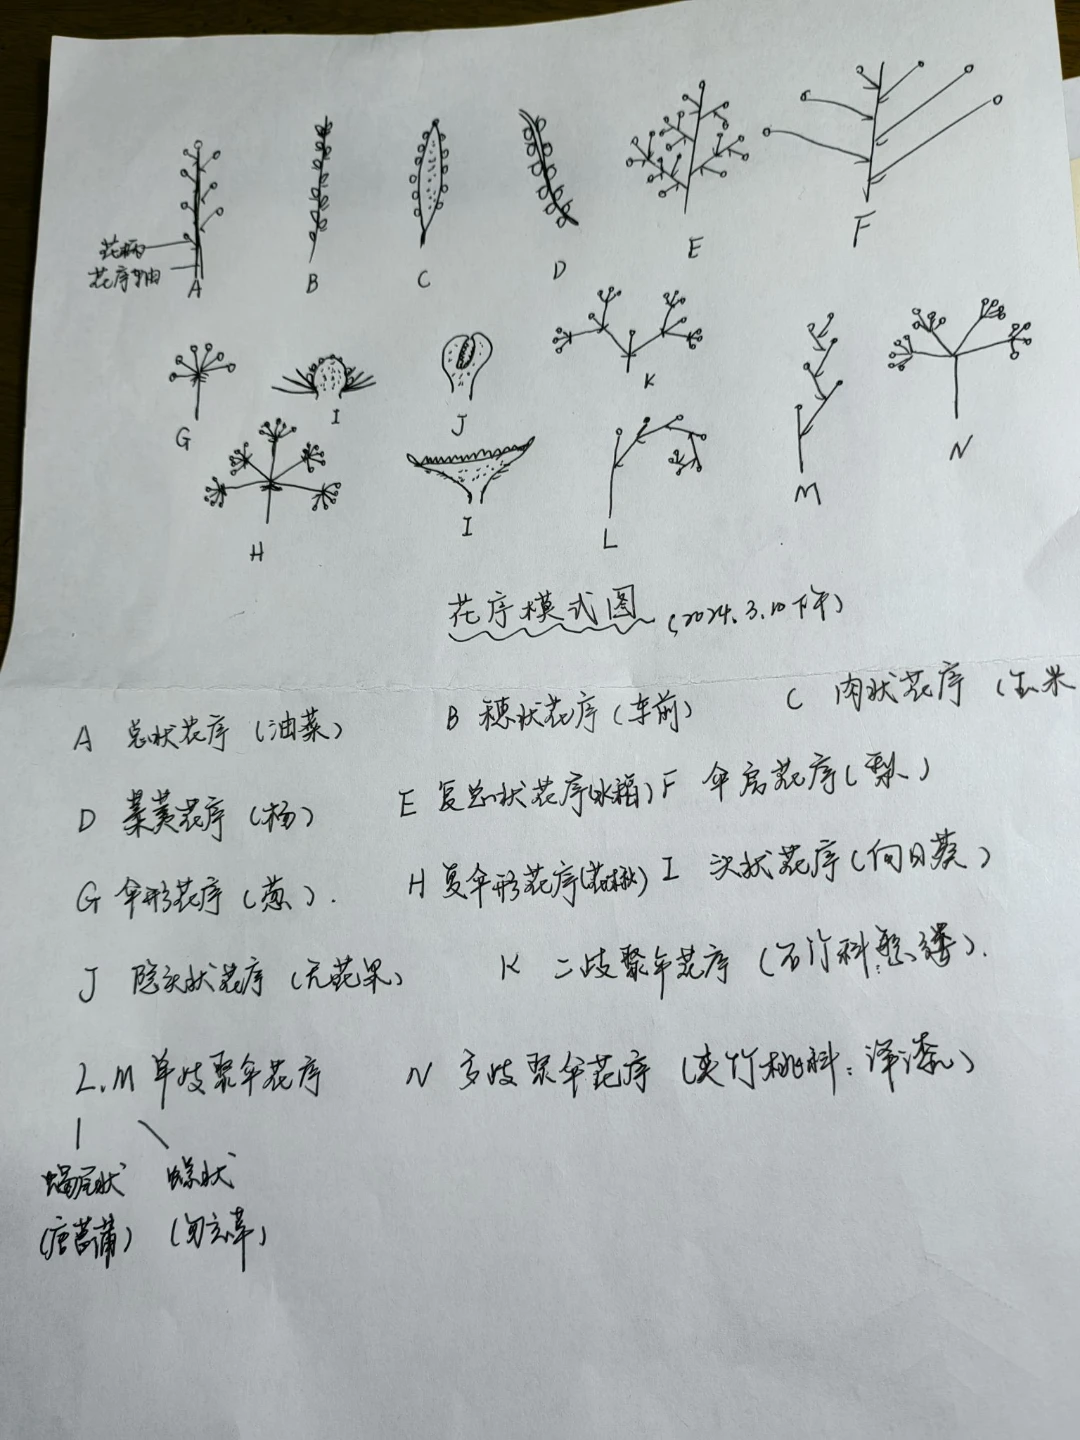 花柄
花序轴
A B C D E F
G I J K M N
H I L
花序模式图 (2024.3.10下午)
A 总状花序 (油菜) B 穗状花序 (车前) C 肉状花序 (玉米
D 葇荑花序 (杨) E 复总状花序(水稻) F 伞房花序 (梨)
G 伞形花序 (葱). H 复伞形花序(花楸) I 头状花序 (向日葵)
J 隐头状花序 (无花果) K 二歧聚伞花序 (石竹科:繁缕).
L.M 单歧聚伞花序 N 多歧聚伞花序 (夹竹桃科:泽漆)
蝎尾状 螺状
(唐菖蒲)